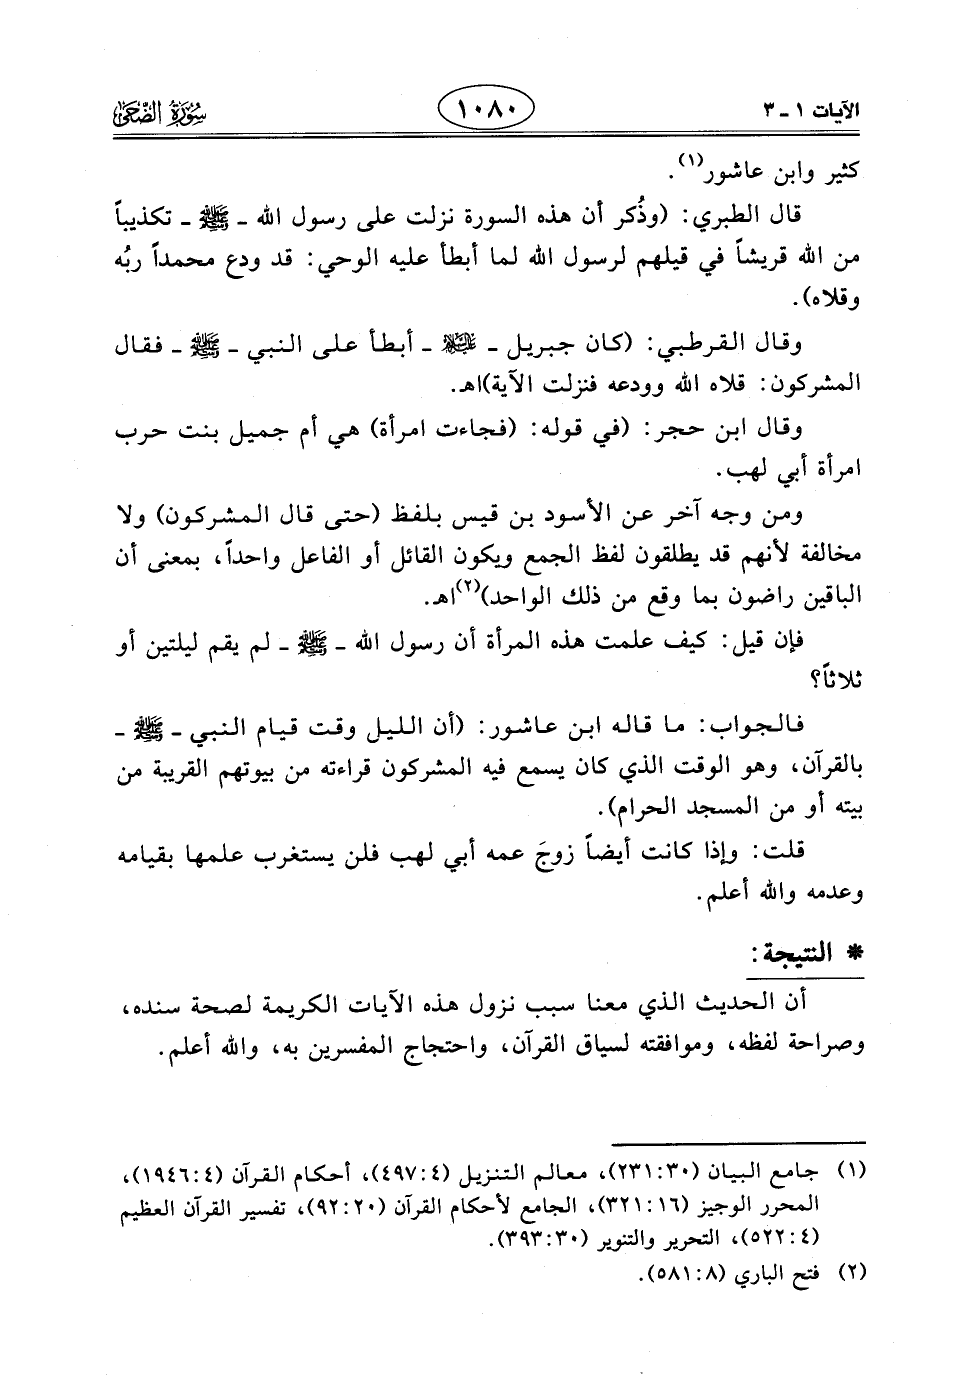 الآيات ١ ـ ٣
١٠٨٠
سُورَةُ الضُّحَىٰ
كثير وابن عاشور(١).
قال الطبري: (وذُكر أن هذه السورة نزلت على رسول الله ـ ﷺ ـ تكذيباً
من الله قريشاً في قيلهم لرسول الله لما أبطأ عليه الوحي: قد ودع محمداً ربُه
وقلاه).
وقال القرطبي: (كان جبريل ـ عليه السلام ـ أبطأ على النبي ـ ﷺ ـ فقال
المشركون: قلاه الله وودعه فنزلت الآية)اهـ.
وقال ابن حجر: (في قوله: (فجاءت امرأة) هي أم جميل بنت حرب
امرأة أبي لهب.
ومن وجه آخر عن الأسود بن قيس بلفظ (حتى قال المشركون) ولا
مخالفة لأنهم قد يطلقون لفظ الجمع ويكون القائل أو الفاعل واحداً، بمعنى أن
الباقين راضون بما وقع من ذلك الواحد)(٢)اهـ.
فإن قيل: كيف علمت هذه المرأة أن رسول الله ـ ﷺ ـ لم يقم ليلتين أو
ثلاثاً؟
فالجواب: ما قاله ابن عاشور: (أن الليل وقت قيام النبي ـ ﷺ ـ
بالقرآن، وهو الوقت الذي كان يسمع فيه المشركون قراءته من بيوتهم القريبة من
بيته أو من المسجد الحرام).
قلت: وإذا كانت أيضاً زوجَ عمه أبي لهب فلن يستغرب علمها بقيامه
وعدمه والله أعلم.
* النتيجة:
أن الحديث الذي معنا سبب نزول هذه الآيات الكريمة لصحة سنده،
وصراحة لفظه، وموافقته لسياق القرآن، واحتجاج المفسرين به، والله أعلم.
(١) جامع البيان (٢٣١:٣٠)، معالم التنزيل (٤٩٧:٤)، أحكام القرآن (١٩٤٦:٤)،
المحرر الوجيز (٣٢١:١٦)، الجامع لأحكام القرآن (٩٢:٢٠)، تفسير القرآن العظيم
(٥٢٢:٤)، التحرير والتنوير (٣٩٣:٣٠).
(٢) فتح الباري (٥٨١:٨).